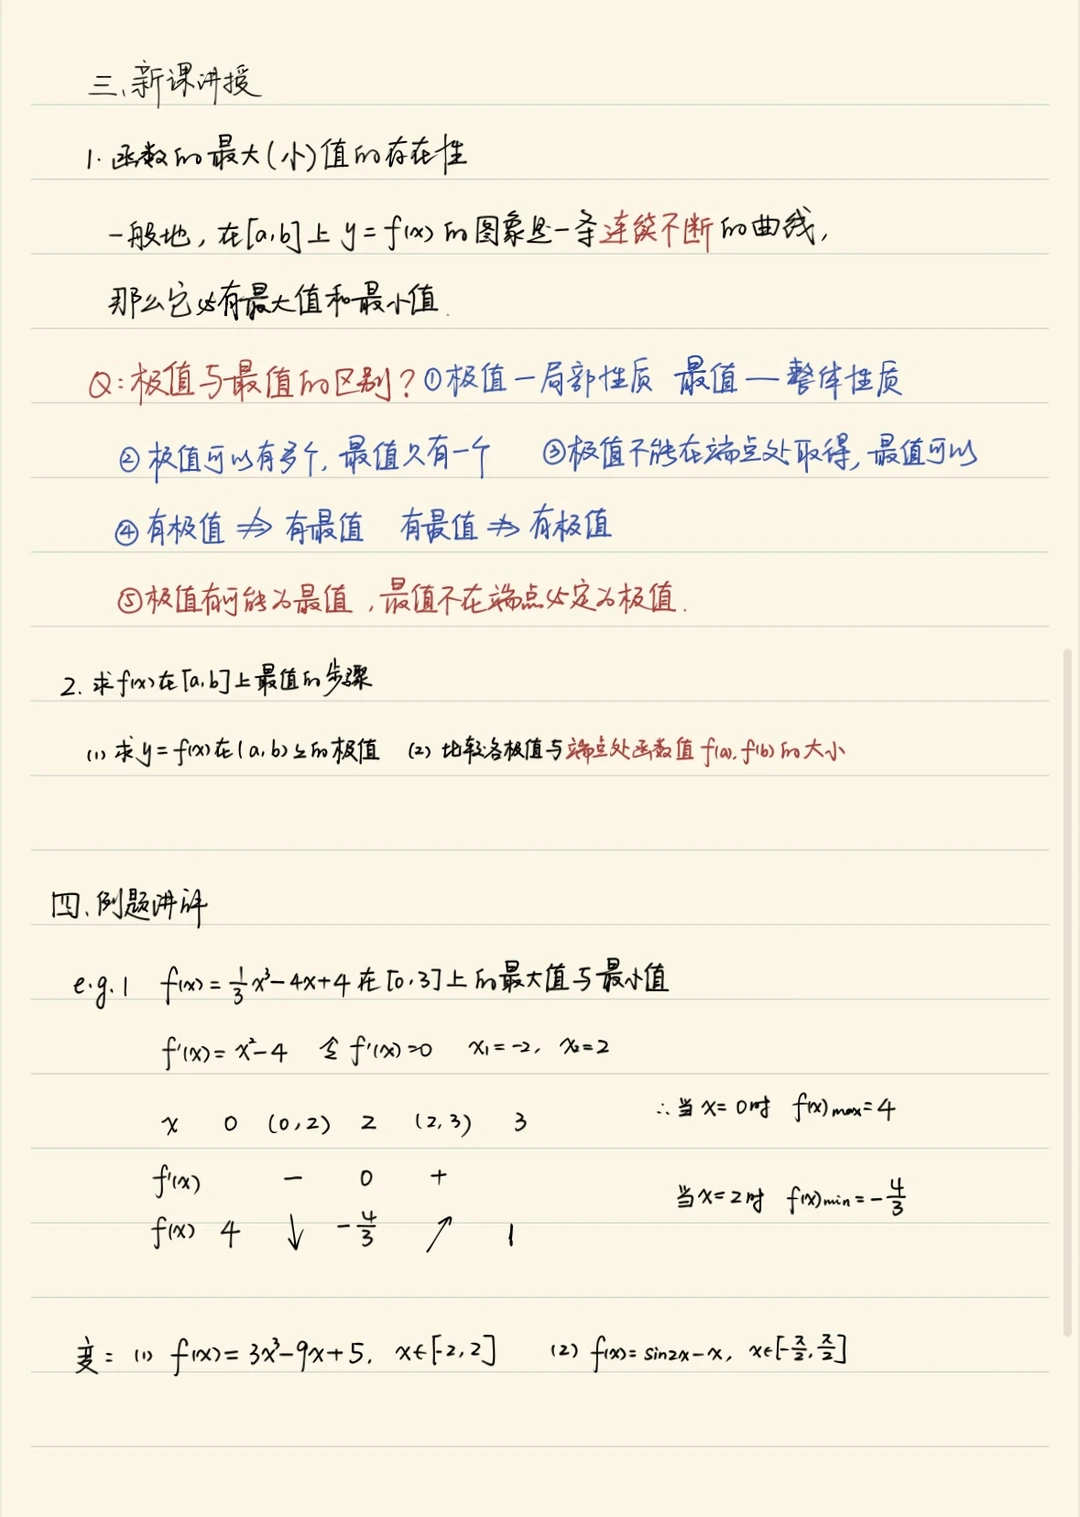 三、新课讲授
1. 函数的最大(小)值的存在性
一般地，在[a,b]上 y=f(x)的图象是一条连续不断的曲线，
那么它必有最大值和最小值.
Q：极值与最值的区别？①极值—局部性质 最值—整体性质
②极值可以有多个，最值只有一个 ③极值不能在端点处取得，最值可以
④有极值⇏有最值 有最值⇏有极值
⑤极值有可能为最值，最值不在端点必定为极值.
2. 求f(x)在[a,b]上最值的步骤
(1) 求y=f(x)在(a,b)上的极值 (2) 比较各极值与端点处函数值f(a),f(b)的大小
四、例题讲评
e.g.1 f(x)=1/3x³-4x+4在[0,3]上的最大值与最小值
f'(x)=x²-4 令f'(x)=0 x₁=-2, x₂=2
x 0 (0,2) 2 (2,3) 3 ∴当x=0时 f(x)max=4
f'(x) - 0 +
当x=2时 f(x)min=-4/3
f(x) 4 ↓ -4/3 ↗ 1
变：(1) f(x)=3x³-9x+5, x∈[-2,2] (2) f(x)=sin2x-x, x∈[-π/2,π/2]